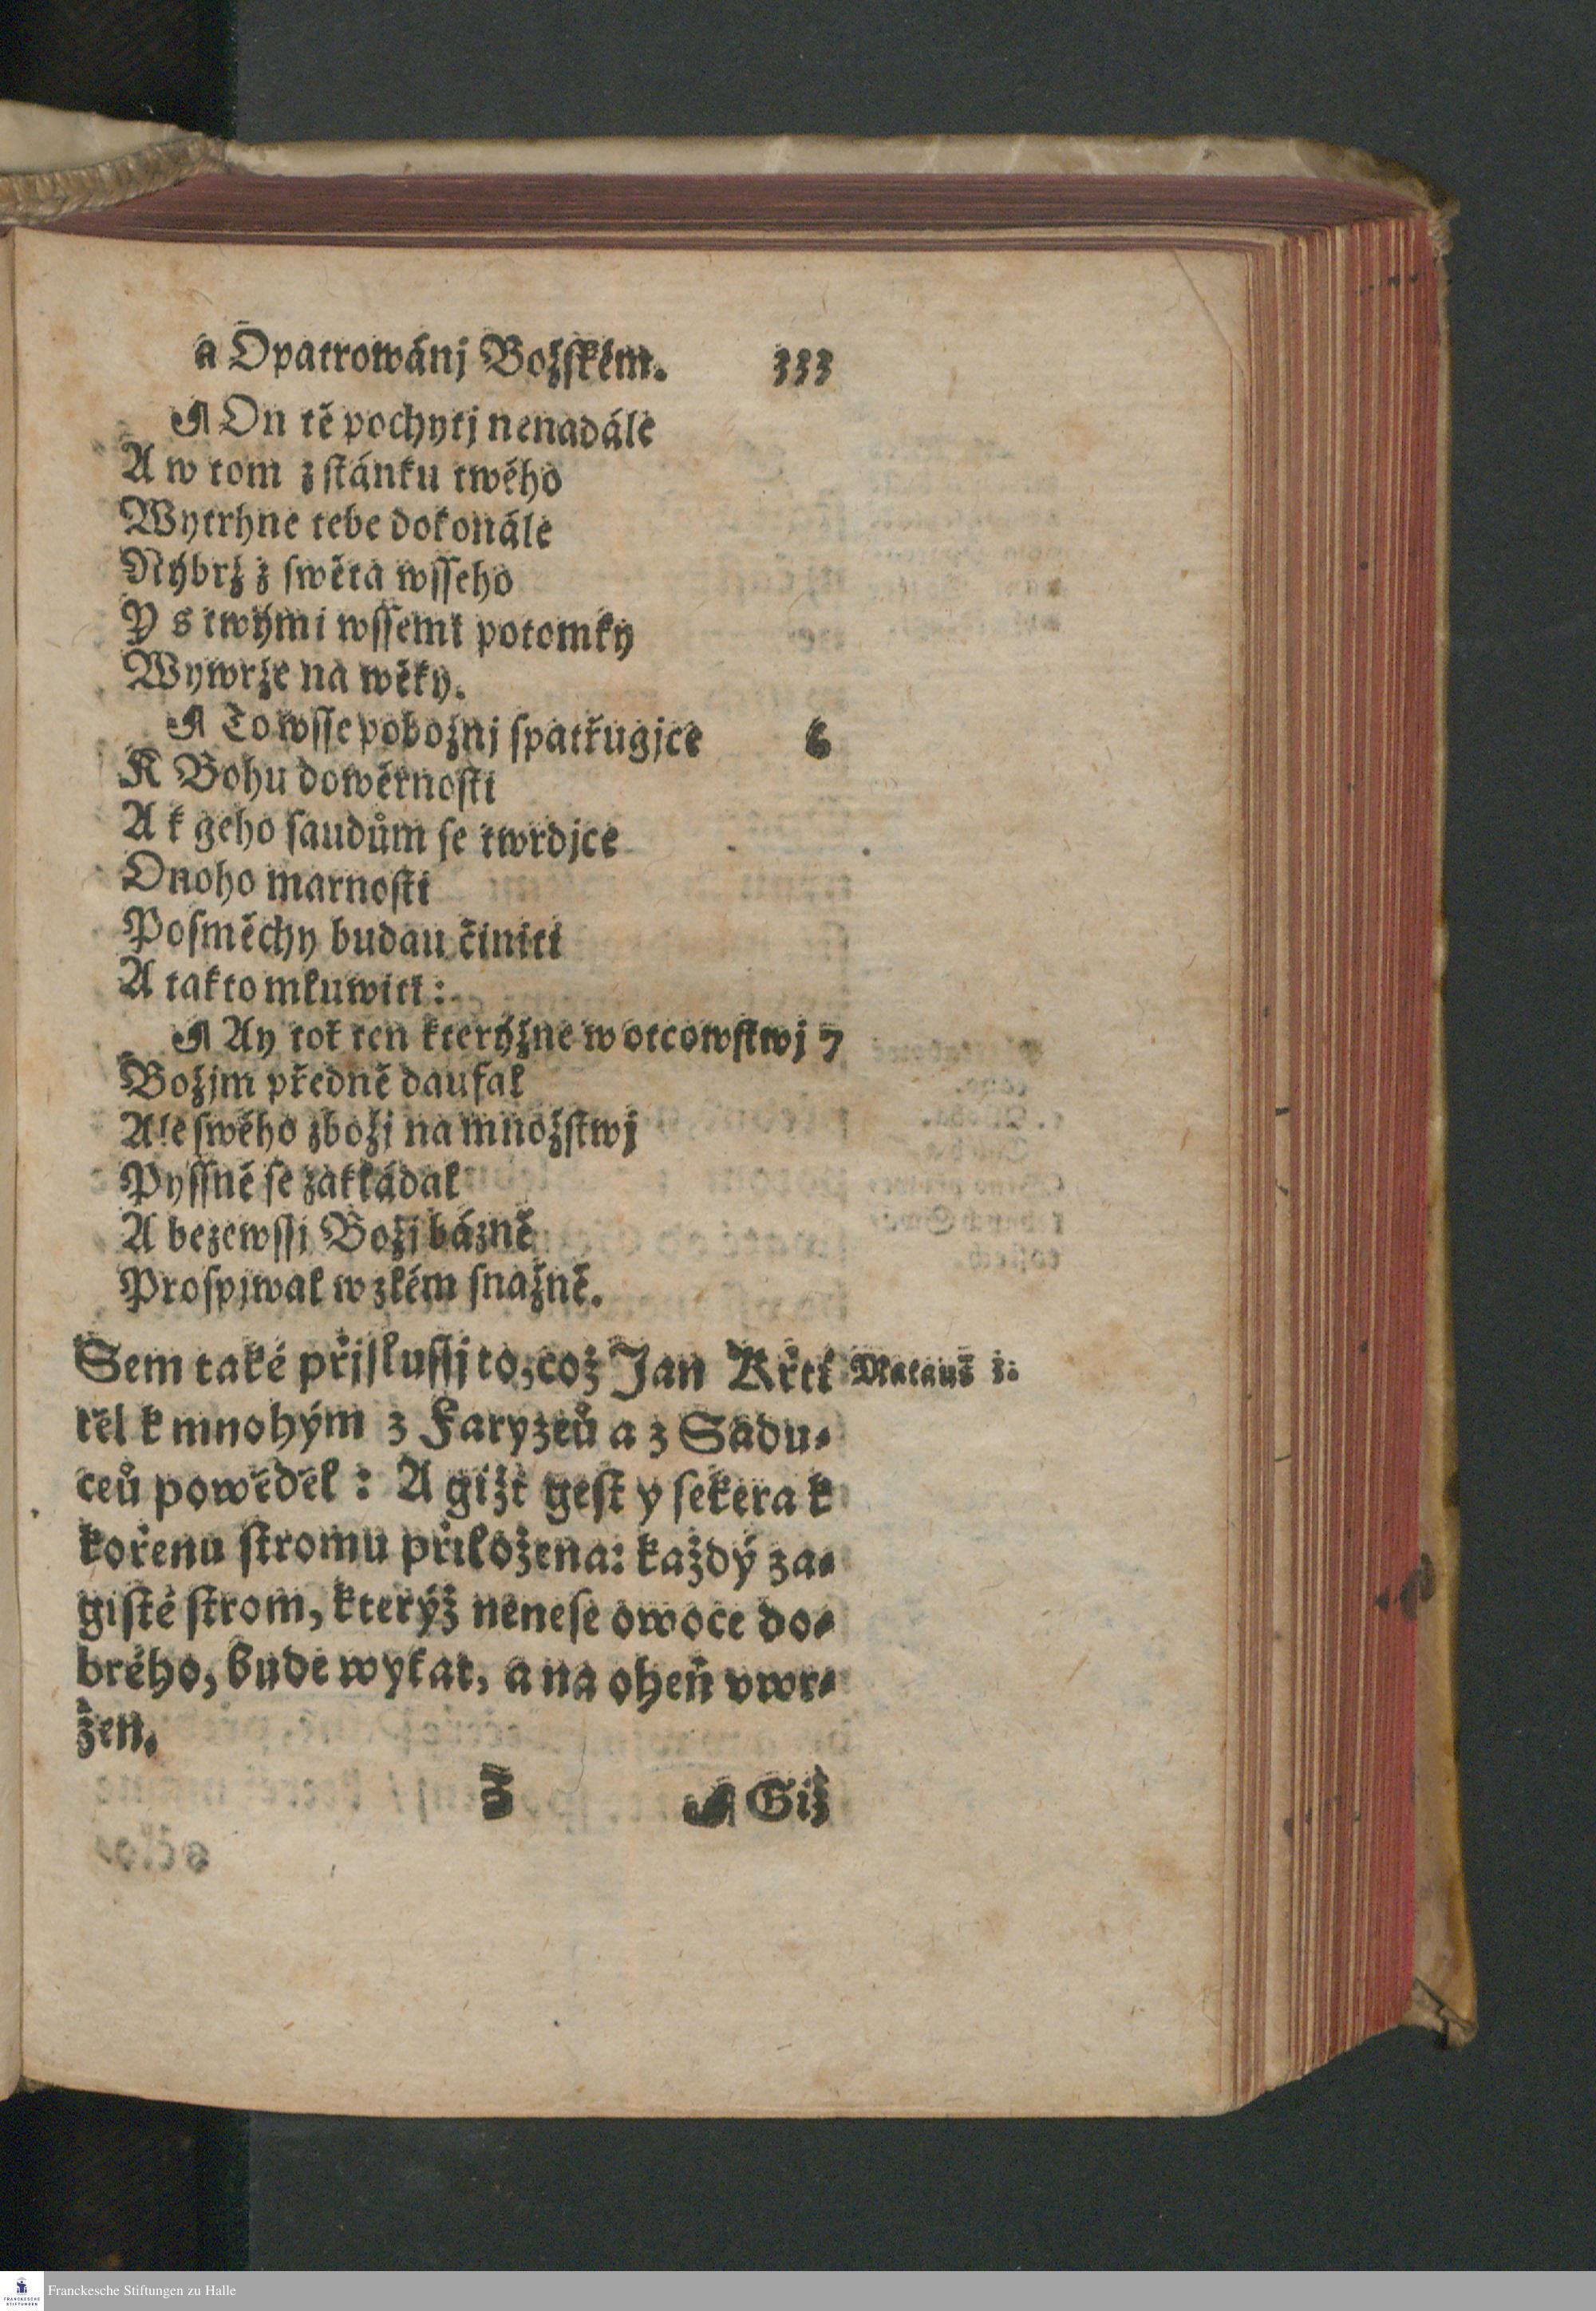 a Opatrowánj Božském. 333
¶ On tě pochytj nenadále
A w tom z stánku twého
Wytrhne tebe dokonále
Nýbrž z swěta wsseho
Y s twými wssemi potomky
Wywrže na wěky.
¶ To wsse pobožnj spatřugjce 6
K Bohu dowěrnosti
A k geho saudům se twrdjce
Onoho marnosti
Posměchy budau činiti
A takto mluwiti:
¶ Ay toť ten kterýž ne w otcowstwj 7
Božjm předně daufal
Ale swého zbožj na množstwj
Pyssně se zakládal
A bezewssj Božj bázně
Prospjwal w zlém snažně.
Sem také přjslussj to, což Jan Křtí Mataus 3.
těl k mnohým z Faryzeů a z Sadu-
ceů powěděl: A gižť gest y sekera k
kořenu stromu přiložena: každý za-
gisté strom, kterýž nenese owoce do-
brého, bude wyťat, a na oheň vwr-
žen.
Z ¶ Giž
Franckesche Stiftungen zu Halle